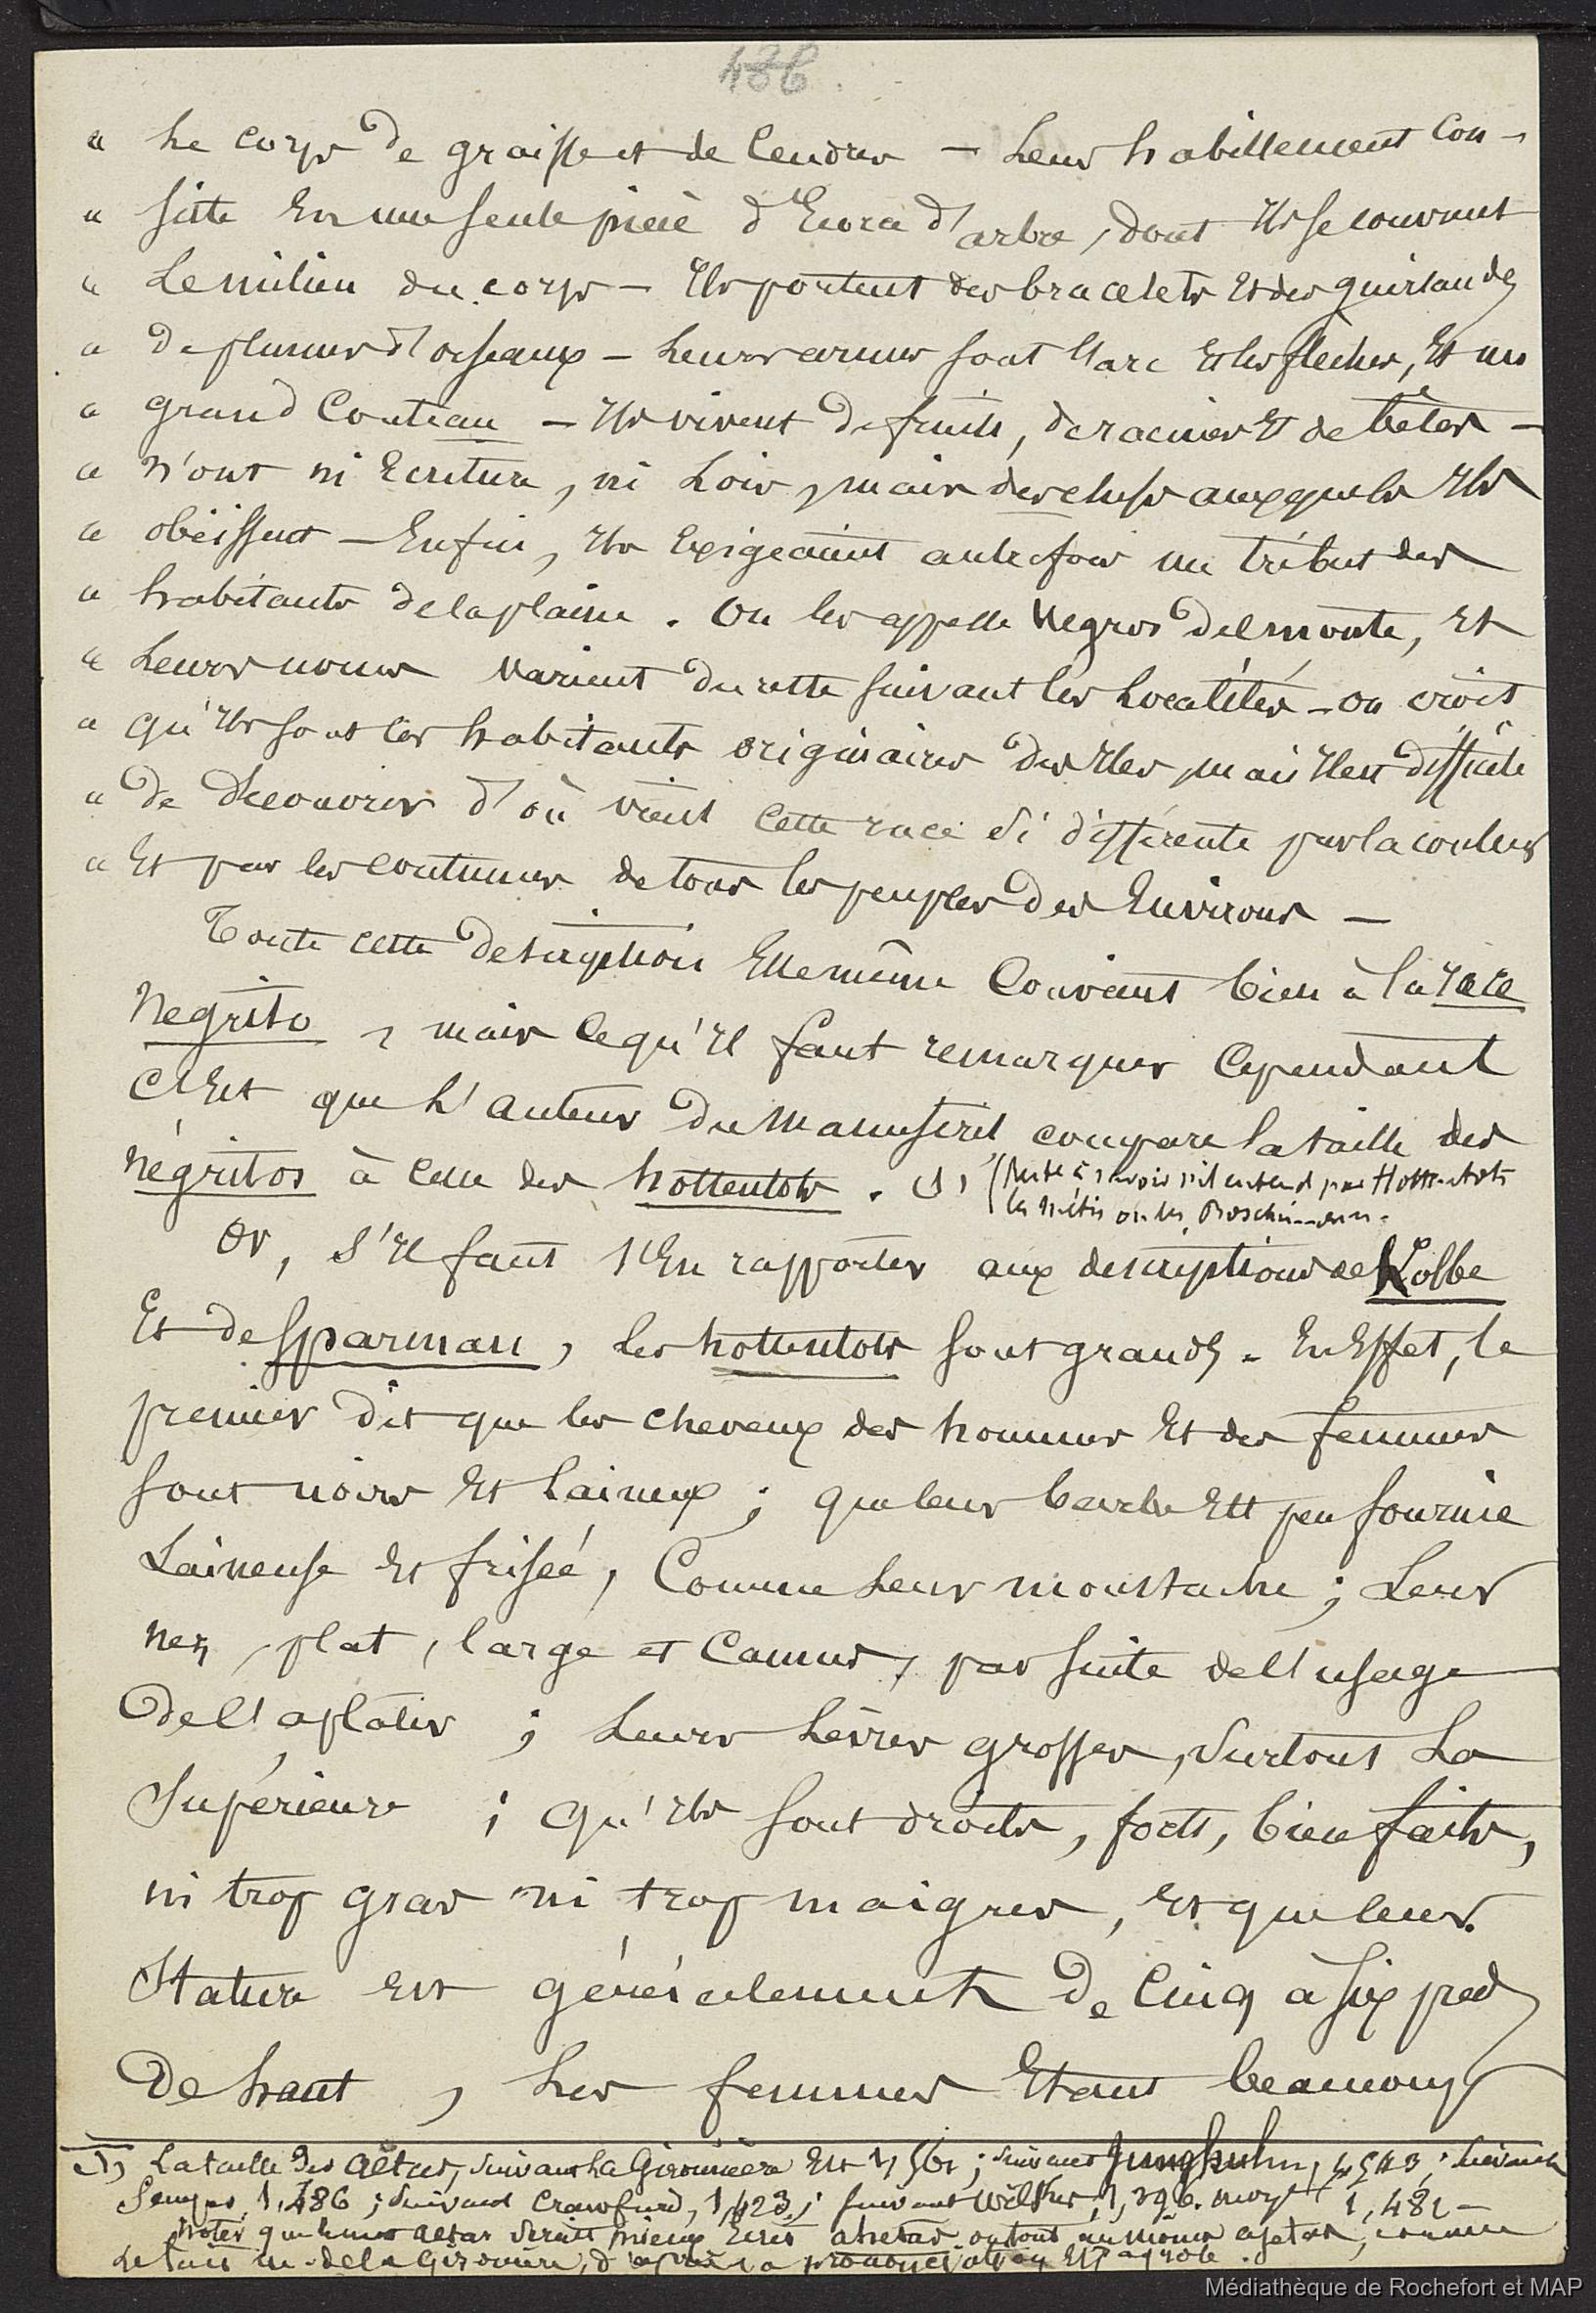 486
" Le corps de graisse et de cendres — Leur habillement con-
" siste En une seule pièce d'Ecorce d'arbre, dont Ils se couvrent
" Le milieu du corps — Ils portent des bracelets Et des guirlandes
" De plumes d'oiseaux — Leurs armes sont l'arc Et les flêches, Et un
" grand Couteau — Ils vivent De fruits, de racines Et de bêtes —
" N'ont ni Ecriture, ni Lois, mais des chefs auxquels Ils
" obéissent — Enfin, Ils Exigeaient autrefois un tribut des
" habitants de la plaine. On les appelle Negros del monte, Et
" Leurs noms varient du reste suivant les Localités — on croit
" qu'Ils sont les habitants originaires des Iles, mais Il est difficile
" De découvrir d'où vient cette race si différente par la couleur
" Et par les coutumes de tous les peuples des Environs —
Toute cette description Elle même Convient bien à la race
Negrito, mais ce qu'Il faut remarquer Cependant
C'Est que L'auteur Du Manuscrit compare la taille des
négritos à celle des hottentots. (1) (Reste à savoir s'il entend par Hottentots
les métis ou les Boschimans.
Or, s'Il faut s'En rapporter aux descriptions de Kolbe
Et de Sparman, Les hottentots sont grands. En Effet, le
premier dit que les cheveux des hommes Et des femmes
sont noirs Et Laineux; que leur barbe Est peu fournie
Laineuse Et frisée, Comme Leur moustache; Leur
nez, plat, large et Camus, par suite de l'usage
De l'aplatir; Leurs Lèvres grosses, surtout La
Supérieure; qu'Ils sont droits, forts, bien faits,
ni trop gras ni trop maigres, Et que leur
Stature Est généralement De Cinq à six pieds
De haut, Les femmes Etant beaucoup
(1) La taille Des Aëtas, suivant La Gironnière Est 1,561; suivant Junghuhn, 1,543; suivant
Semper, 1,486; suivant Crawfurd, 1,423; suivant Wilkes, 1,396. moye 1,481 —
Noter que le mot aetas serait mieux Ecrit ahetas ou tout au moins ajetas, comme
Le fait M. de la Gironière, d'après la prononciation Espagnole.
Médiathèque de Rochefort et MAP